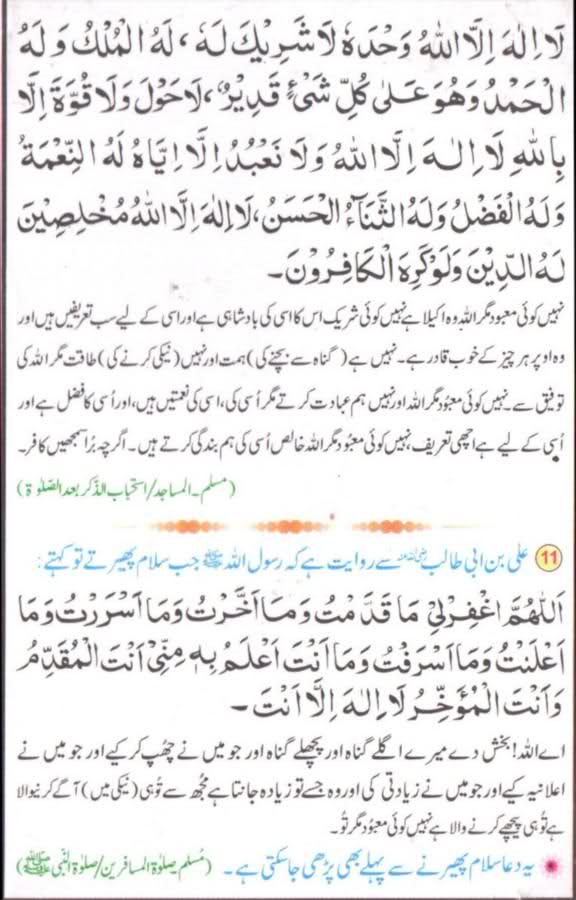 لَا اِلٰهَ اِلَّا اللهُ وَحْدَهٗ لَا شَرِيْكَ لَهٗ، لَهُ الْمُلْكُ وَلَهُ
الْحَمْدُ وَهُوَ عَلٰى كُلِّ شَىْءٍ قَدِيْرٌ، لَاحَوْلَ وَلَا قُوَّةَ اِلَّا
بِاللهِ لَا اِلٰهَ اِلَّا اللهُ وَلَا نَعْبُدُ اِلَّا اِيَّاهُ لَهُ النِّعْمَةُ
وَلَهُ الْفَضْلُ وَلَهُ الثَّنَآءُ الْحَسَنُ، لَا اِلٰهَ اِلَّا اللهُ مُخْلِصِيْنَ
لَهُ الدِّيْنَ وَلَوْكَرِهَ الْكَافِرُوْنَ۔
نہیں کوئی معبود مگر اللہ وہ اکیلا ہے نہیں کوئی شریک اس کا اسی کی بادشاہی ہے اور اسی کے لیے سب تعریفیں ہیں اور
وہ اوپر ہر چیز کے خوب قادر ہے۔ نہیں ہے (گناہ سے بچنے کی) ہمت اور نہیں (نیکی کرنے کی) طاقت مگر اللہ کی
توفیق سے۔ نہیں کوئی معبُود مگر اللہ اور نہیں ہم عبادت کرتے مگر اُسی کی، اسی کی نعمتیں ہیں، اور اُسی کا فضل ہے اور
اُسی کے لیے ہے اچھی تعریف، نہیں کوئی معبُود مگر اللہ خالص اُسی کی ہم بندگی کرتے ہیں۔ اگرچہ بُرا سمجھیں کافر۔
(مسلم۔ المساجد/استحباب الذّکر بعد الصّلوٰة)
11 علی بن ابی طالب رضی اللہ عنہ سے روایت ہے کہ رسول اللہ ﷺ جب سلام پھیرتے تو کہتے:
اَللّٰهُمَّ اغْفِرْلِيْ مَا قَدَّمْتُ وَمَا اَخَّرْتُ وَمَا اَسْرَرْتُ وَمَا
اَعْلَنْتُ وَمَا اَسْرَفْتُ وَمَا اَنْتَ اَعْلَمُ بِهٖ مِنِّيْ اَنْتَ الْمُقَدِّمُ
وَاَنْتَ الْمُؤَخِّرُ لَا اِلٰهَ اِلَّا اَنْتَ۔
اے اللہ! بخش دے میرے اگلے گناہ اور پچھلے گناہ اور جو میں نے چھُپ کر کیے اور جو میں نے
اعلانیہ کیے اور جو میں نے زیادتی کی اور وہ جسے تو زیادہ جانتا ہے مجھ سے تُو ہی (نیکی میں) آگے کرنیوالا
ہے تُو ہی پیچھے کرنے والا ہے نہیں کوئی معبُود مگر تُو۔
یہ دعا سلام پھیرنے سے پہلے بھی پڑھی جا سکتی ہے۔ (مُسلم صلٰوة المسافرین/صلٰوة النّبی ﷺ)